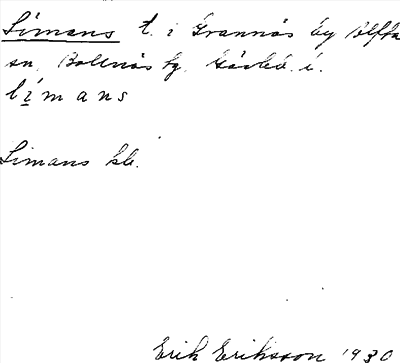 Limans t. i Grannäs by Alfta
sn. Bollnäs tg. Gävleb. l.
limans
Limans kb.
Erik Eriksson 1930